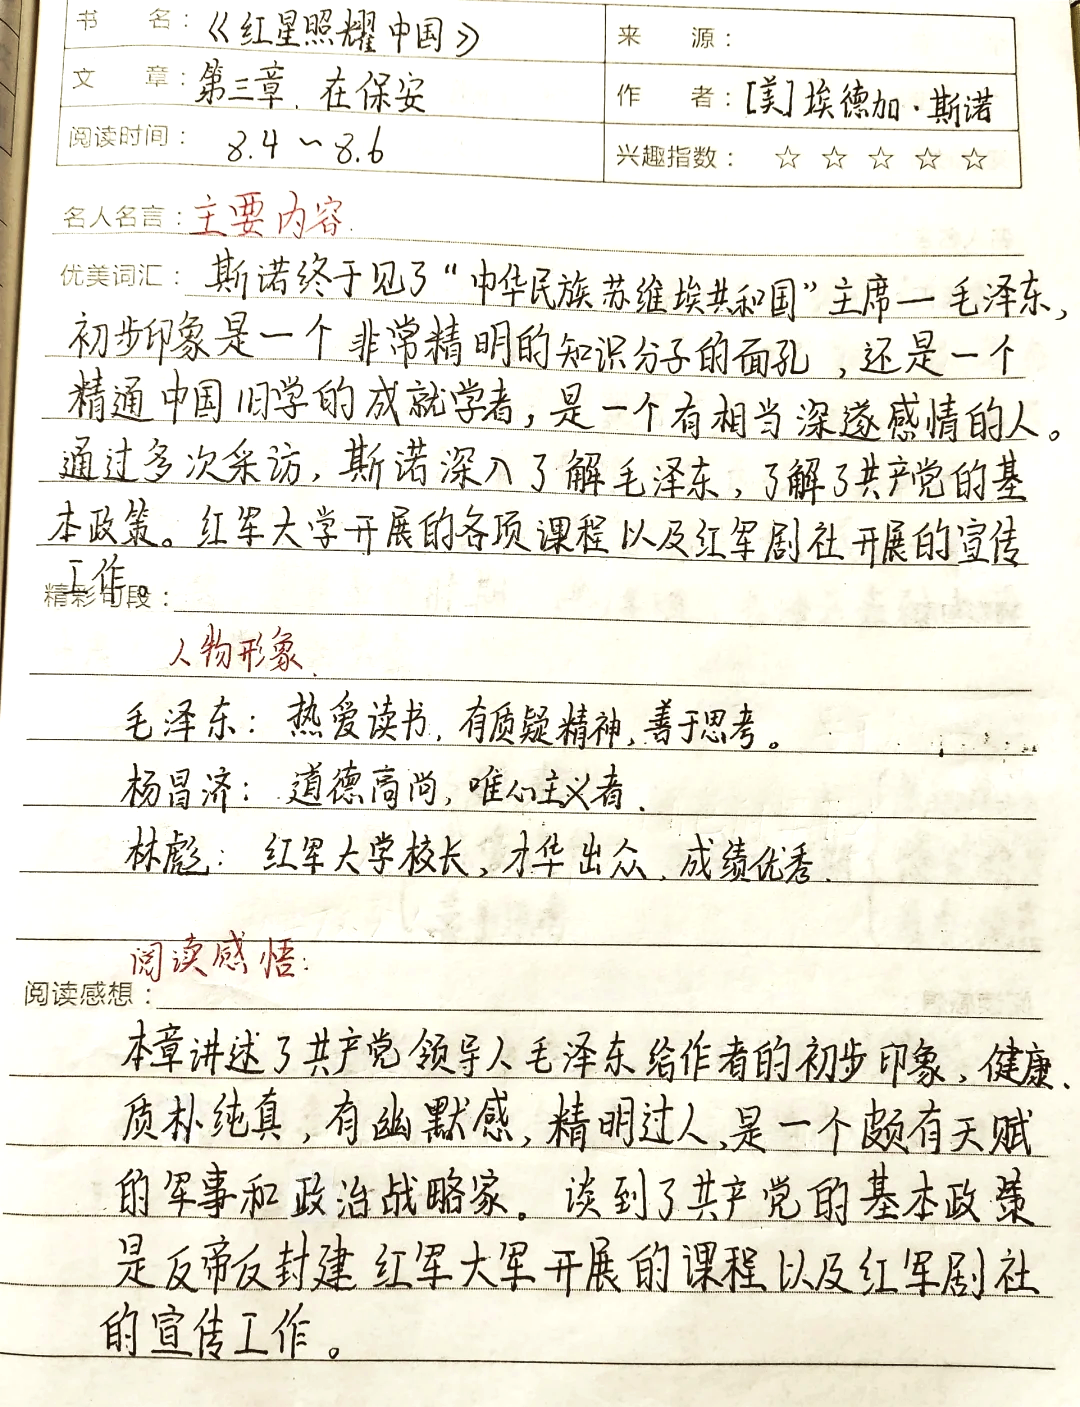 书 名：《红星照耀中国》
来 源：
文 章：第三章、在保安
作 者：[美]埃德加·斯诺
阅读时间： 8.4～8.6
兴趣指数：☆ ☆ ☆ ☆ ☆
名人名言：主要内容.
优美词汇： 斯诺终于见了“中华民族苏维埃共和国”主席一毛泽东，
初步印象是一个非常精明的知识分子的面孔，还是一个
精通中国旧学的成就学者，是一个有相当深邃感情的人。
通过多次采访，斯诺深入了解毛泽东，了解了共产党的基
本政策。红军大学开展的各项课程以及红军剧社开展的宣传
工作。
精彩句段：
人物形象.
毛泽东：热爱读书，有质疑精神，善于思考。
杨昌济：道德高尚，唯心主义者.
林彪：红军大学校长、才华出众、成绩优秀.
阅读感悟：
阅读感想：
本章讲述了共产党领导人毛泽东给作者的初步印象、健康、
质朴纯真，有幽默感，精明过人，是一个颇有天赋
的军事和政治战略家。谈到了共产党的基本政策
是反帝反封建红军大军开展的课程以及红军剧社
的宣传工作。